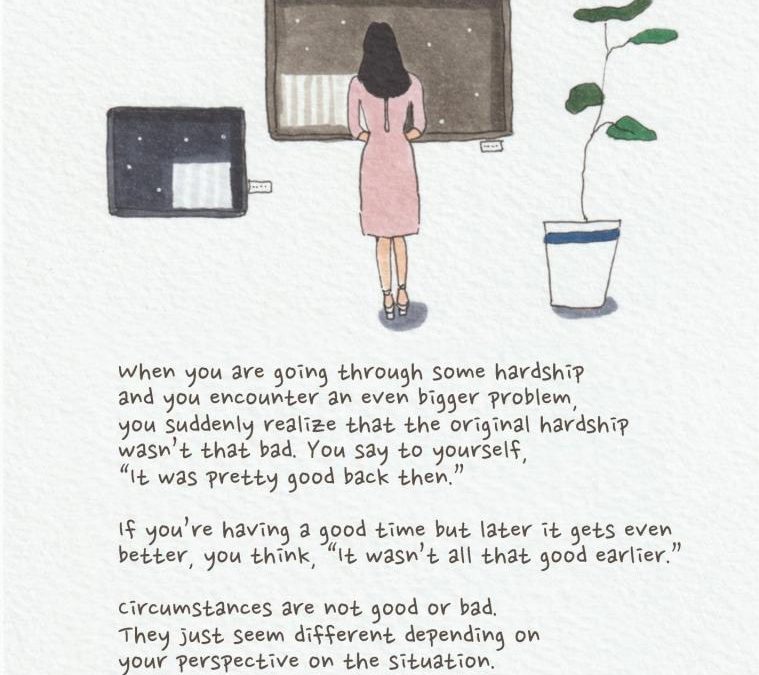 When you are going through some hardship
and you encounter an even bigger problem,
you suddenly realize that the original hardship
wasn't that bad. You say to yourself,
"It was pretty good back then."
If you're having a good time but later it gets even
better, you think, "It wasn't all that good earlier."
Circumstances are not good or bad.
They just seem different depending on
your perspective on the situation.